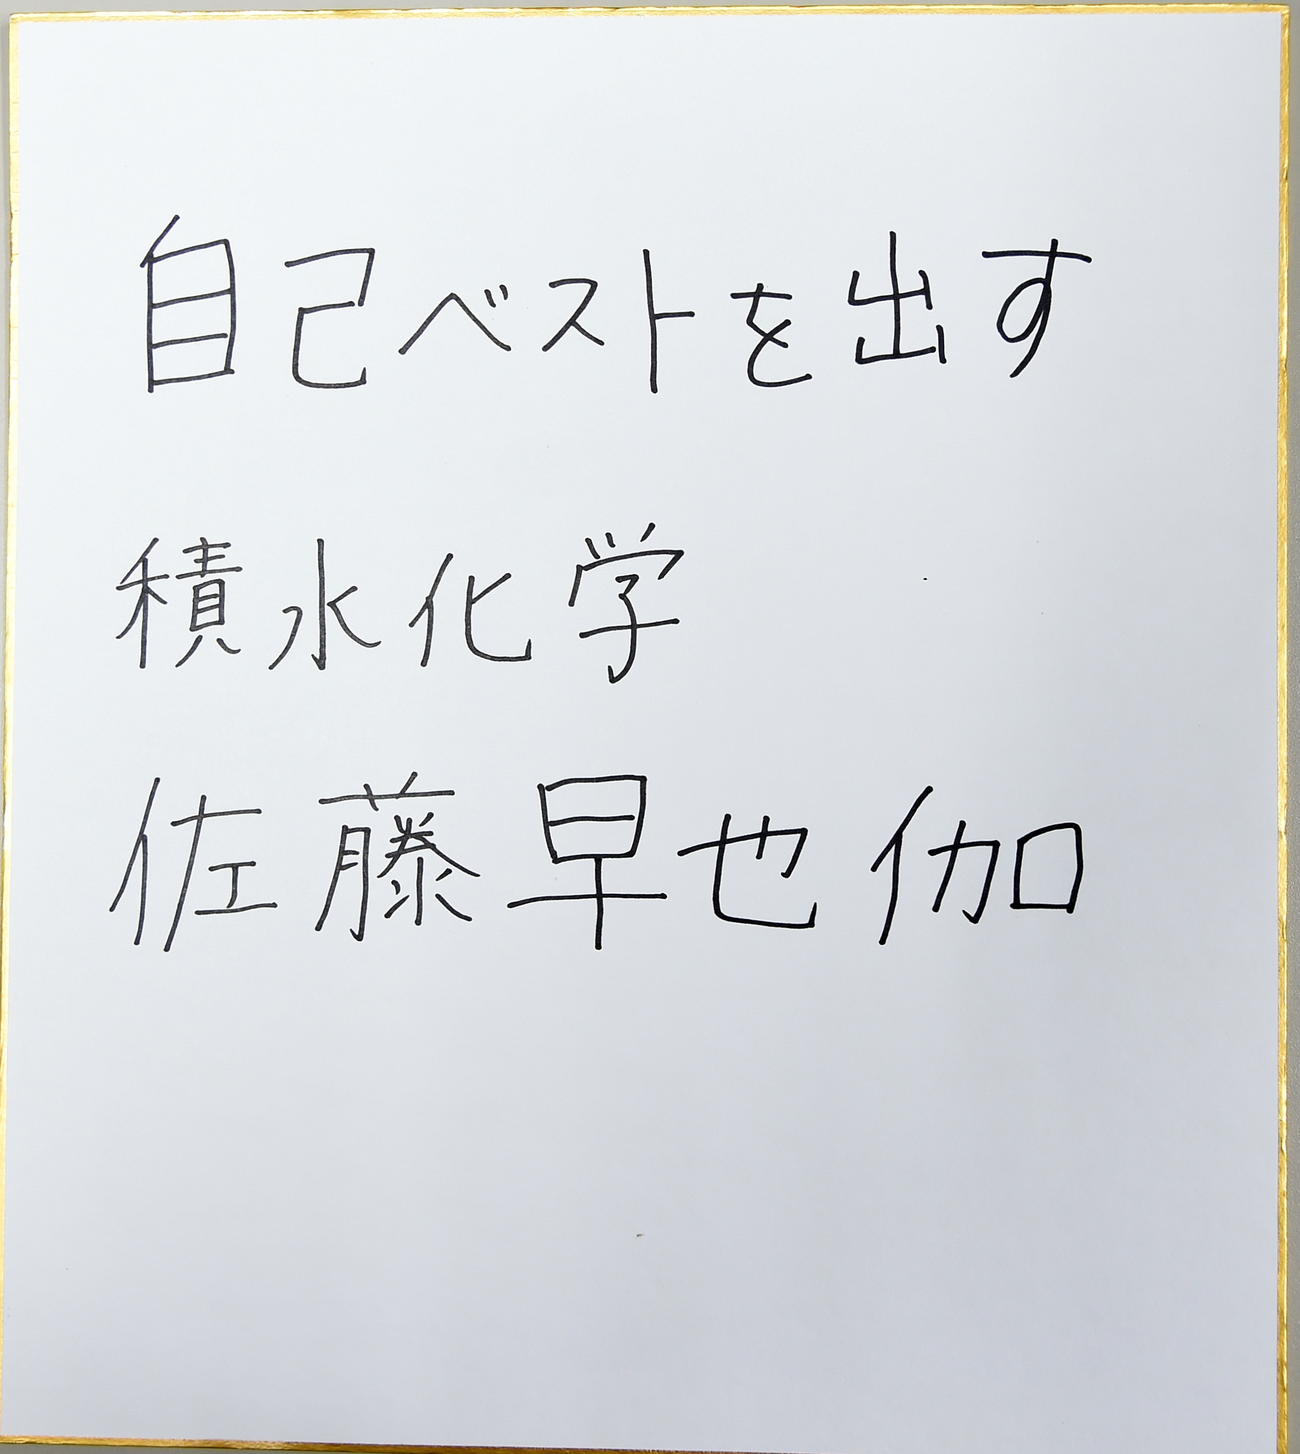 自己ベストを出す
積水化学
佐藤早也伽